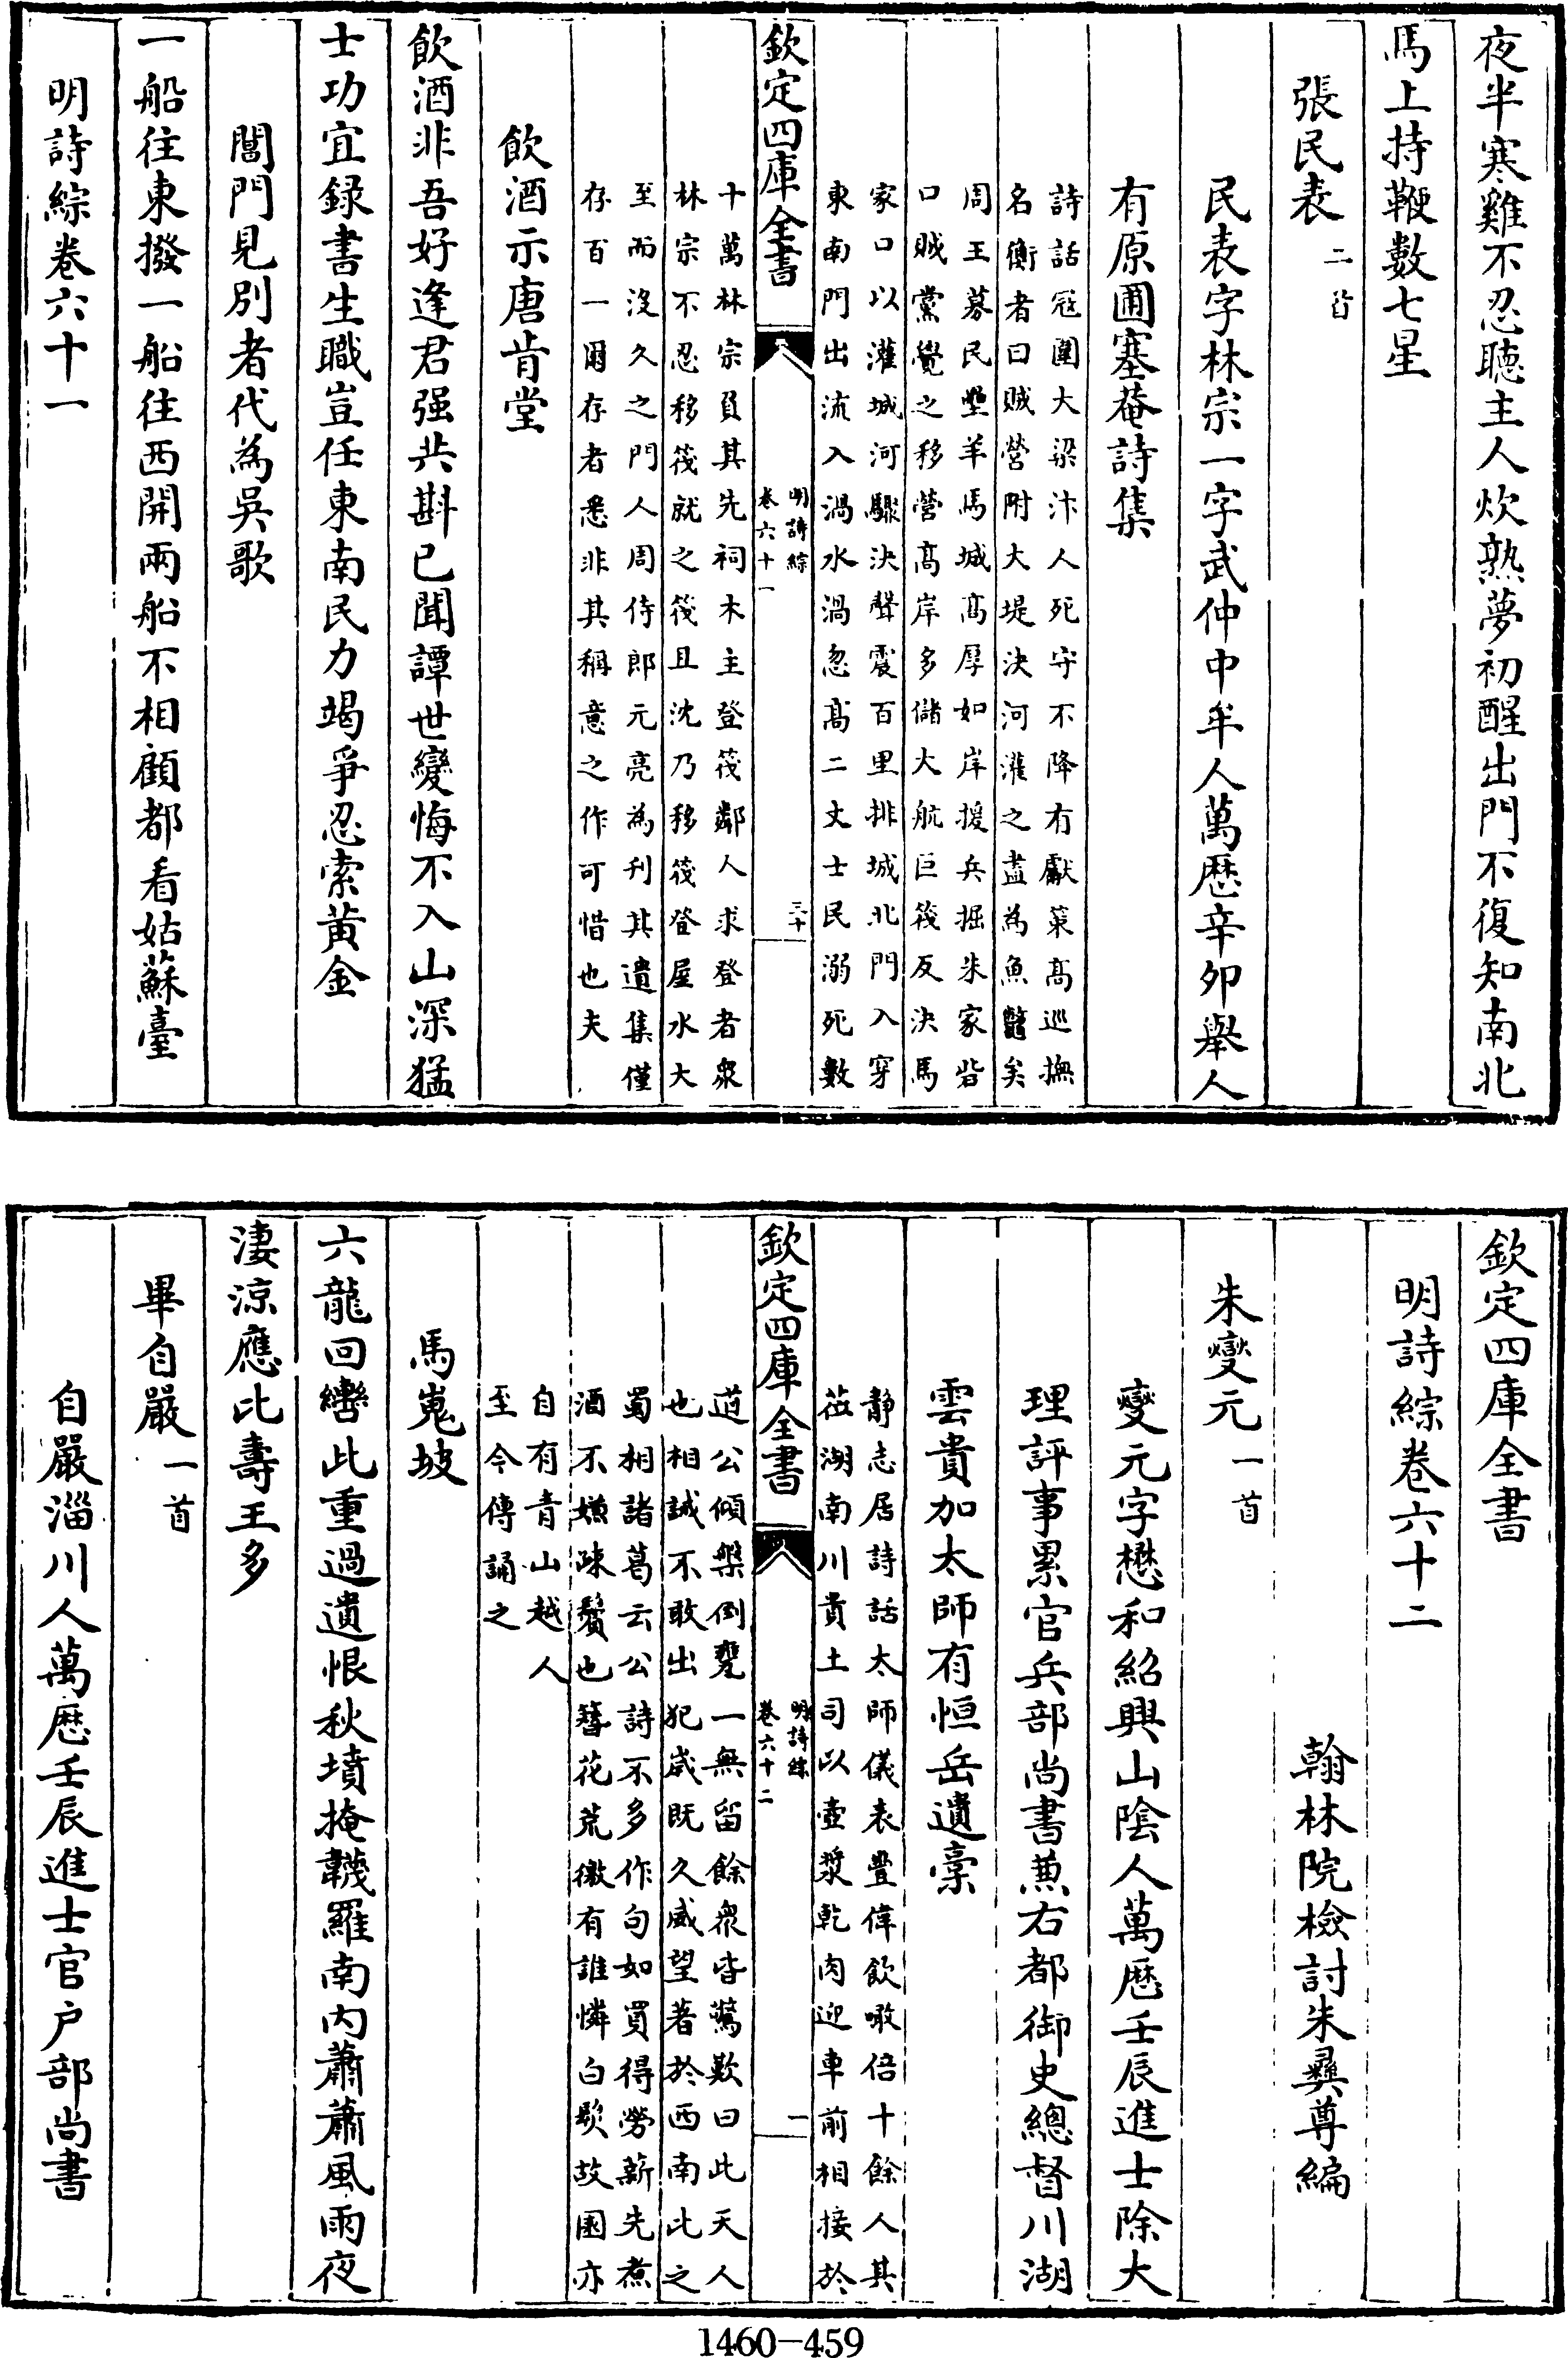 夜半寒雞不忍聽主人炊熟夢初醒出門不復知南北
馬上持鞭數七星
張民表二首
民表字林宗一字武仲中牟人萬歴辛卯舉人
有原圃塞菴詩集
詩話冦圍大梁汴人死守不降有獻策髙巡撫
名衡者曰賊營附大堤決河灌之盡為魚鼈矣
周王募民壘羊馬城髙厚如岸援兵掘朱家砦
口賊黨覺之移營髙岸多儲大航巨筏反決馬
家口以灌城河驟決聲震百里排城北門入穿
東南門出流入渦水渦忽髙二丈士民溺死數
欽定四庫全書
明詩綜
卷六十一
三十
十萬林宗負其先祠木主登筏鄰人求登者衆
林宗不忍移筏就之筏且沈乃移筏登屋水大
至而沒久之門人周侍郎元亮為刋其遺集僅
存百一爾存者悉非其稱意之作可惜也夫
飲酒示唐肯堂
飲酒非吾好逢君强共斟已聞譚世變悔不入山深猛
士功宜録書生職豈任東南民力竭爭忍索黃金
閶門見別者代為吳歌
一船往東撥一船往西開兩船不相顧都看姑蘇臺
明詩綜卷六十一
欽定四庫全書
明詩綜卷六十二
翰林院檢討朱彝尊編
朱燮元一首
燮元字懋和紹興山陰人萬歴壬辰進士除大
理評事累官兵部尚書兼右都御史總督川湖
雲貴加太師有恒岳遺槀
靜志居詩話太師儀表豐偉飲噉倍十餘人其
莅湖南川貴土司以壺漿乾肉迎車前相接於
欽定四庫全書
明詩綜
卷六十二
一
道公傾槃倒甕一無留餘衆皆驚歎曰此天人
也相誡不敢出犯歲既久威望著於西南比之
蜀相諸葛云公詩不多作句如買得勞薪先煮
酒不嫌疎鬢也簪花荒徼有誰憐白髮故園亦
自有青山越人
至今傳誦之
馬嵬坡
六龍回轡此重過遺恨秋墳掩韈羅南内蕭蕭風雨夜
淒涼應比壽王多
畢自嚴一首
自嚴淄川人萬歴壬辰進士官户部尚書
1460-459